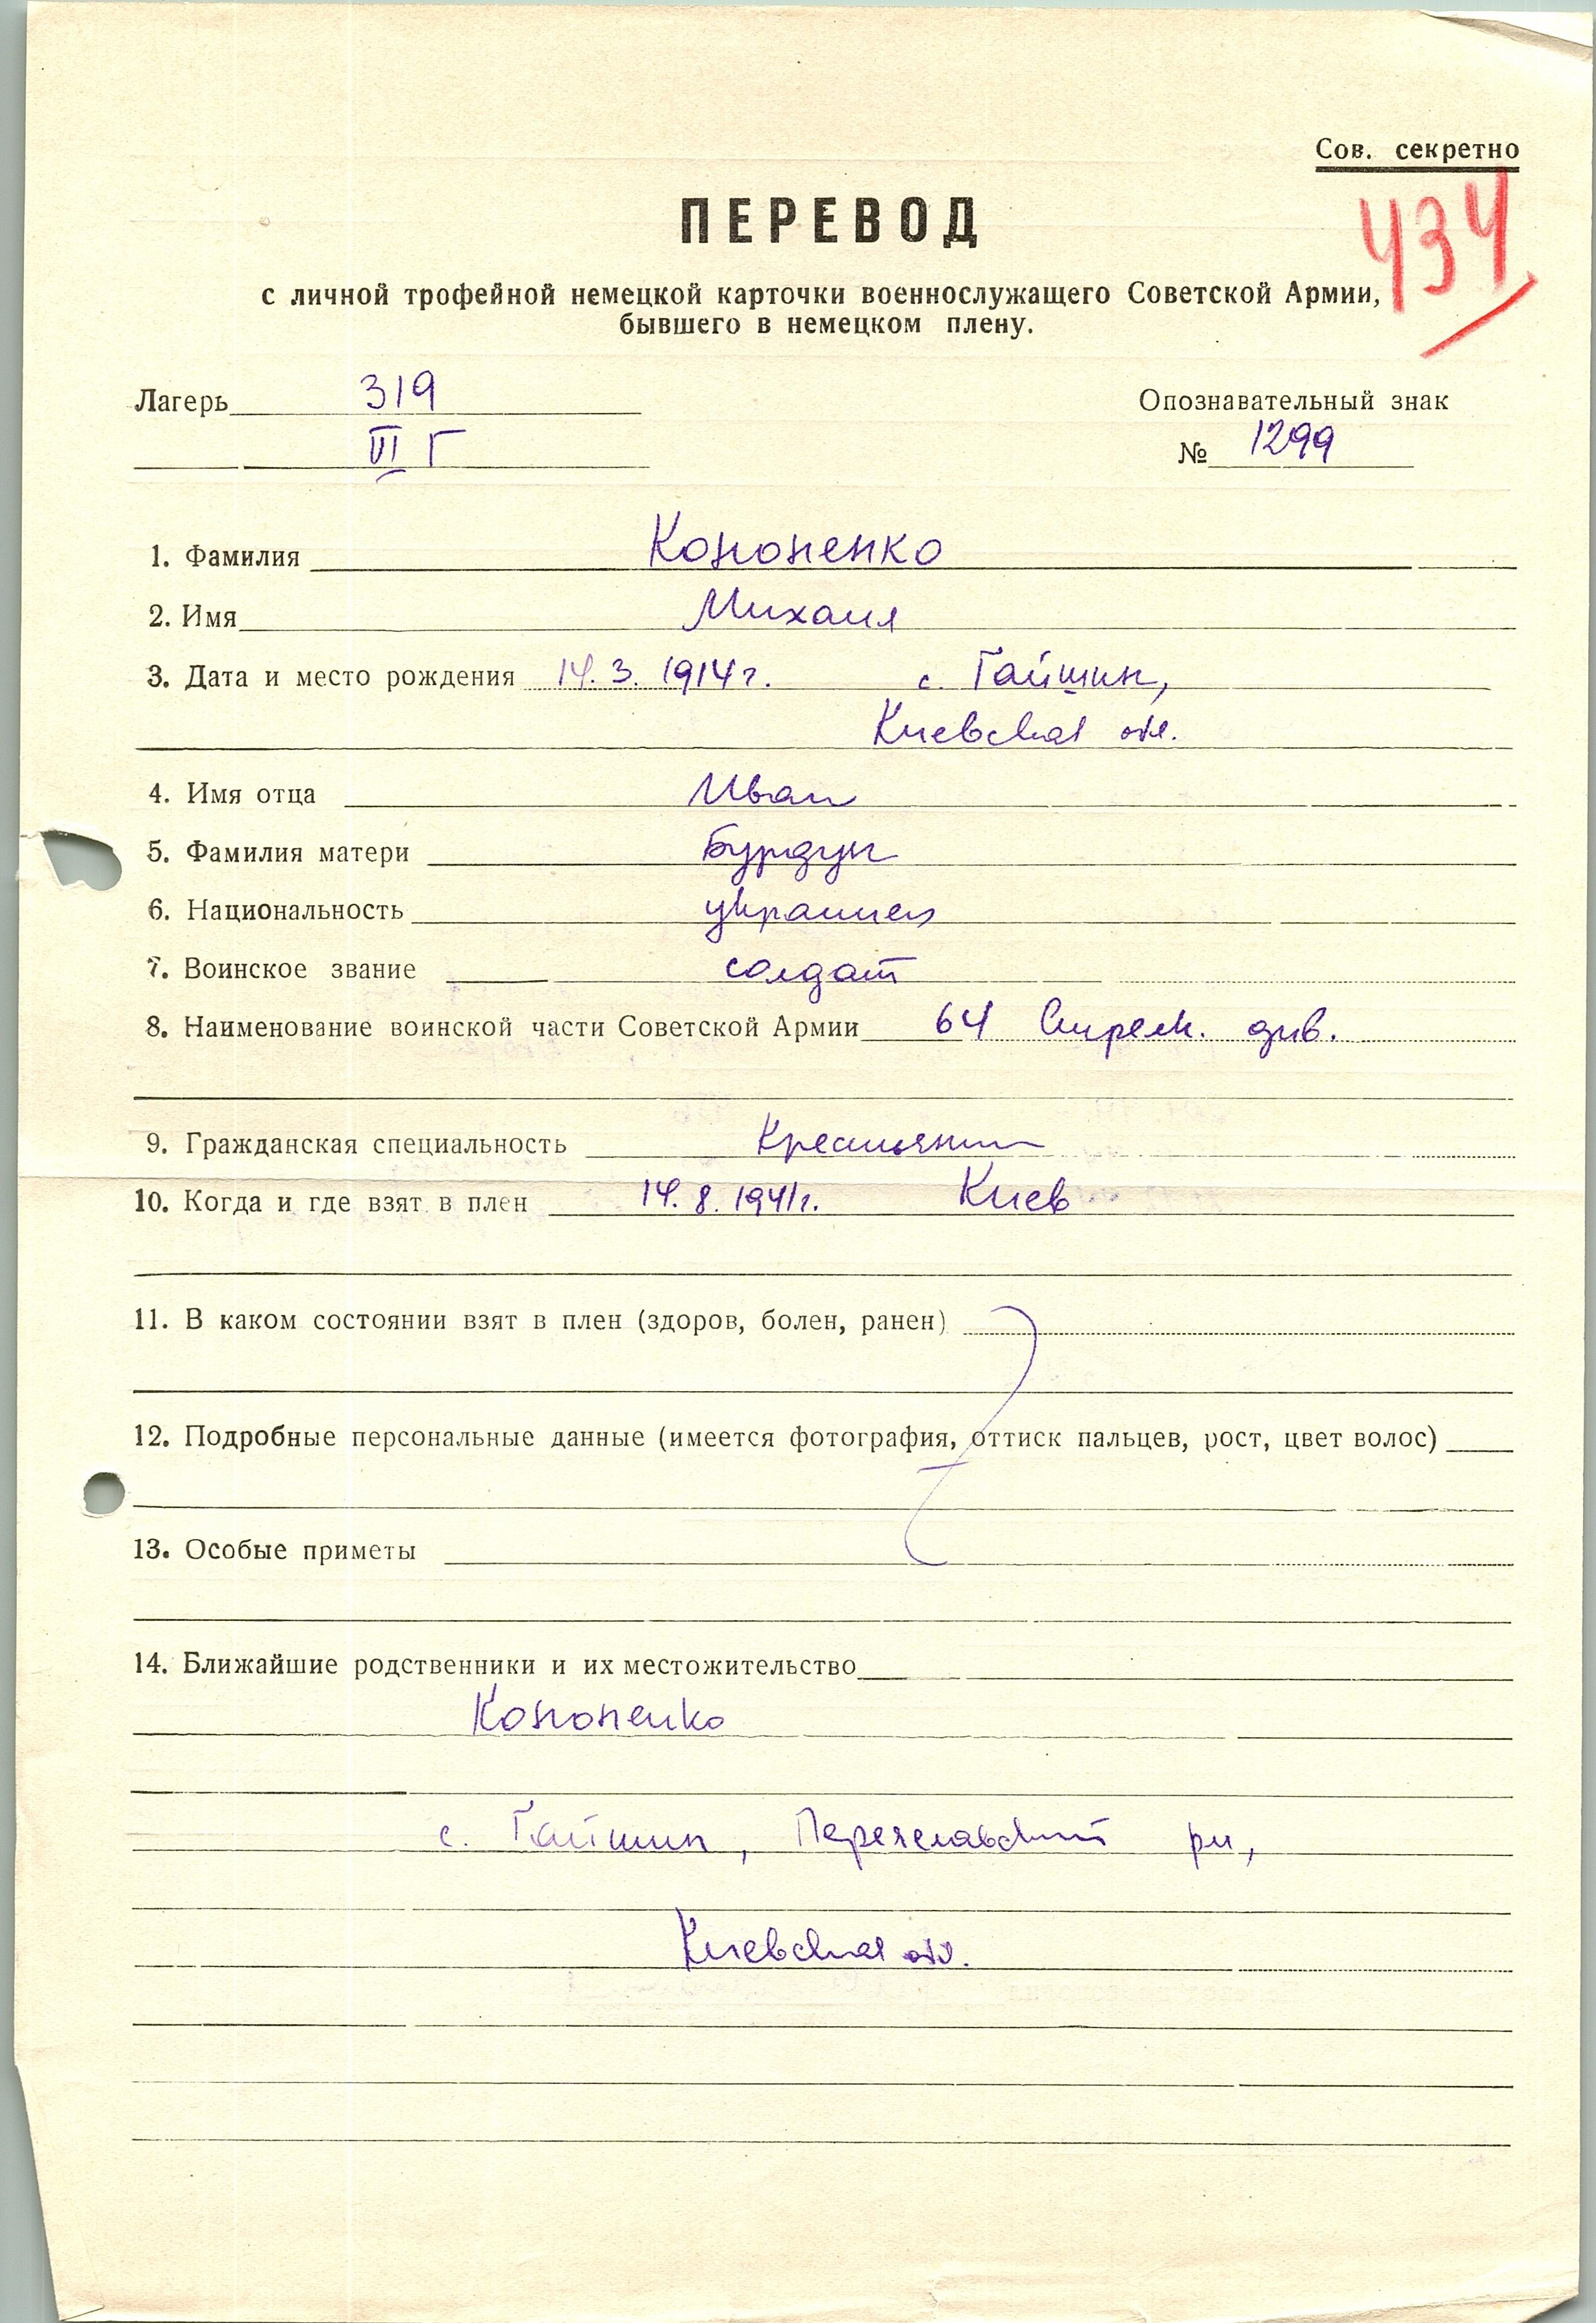 Сов. секретно
434
ПЕРЕВОД
с личной трофейной немецкой карточки военнослужащего Советской Армии,
бывшего в немецком плену.
Лагерь 319 Опознавательный знак
VI Г № 1299
1. Фамилия Кононенко
2. Имя Михаил
3. Дата и место рождения 14.3.1914г. с. Гайшин,
Киевская обл.
4. Имя отца Иван
5. Фамилия матери Бурдун
6. Национальность украинец
7. Воинское звание солдат
8. Наименование воинской части Советской Армии 64 Стрелк. див.
9. Гражданская специальность Крестьянин
10. Когда и где взят в плен 14.8.1941г. Киев
11. В каком состоянии взят в плен (здоров, болен, ранен)
12. Подробные персональные данные (имеется фотография, оттиск пальцев, рост, цвет волос)
13. Особые приметы
14. Ближайшие родственники и их местожительство
Кононенко
с. Гайшин, Переяславский рн,
Киевская обл.